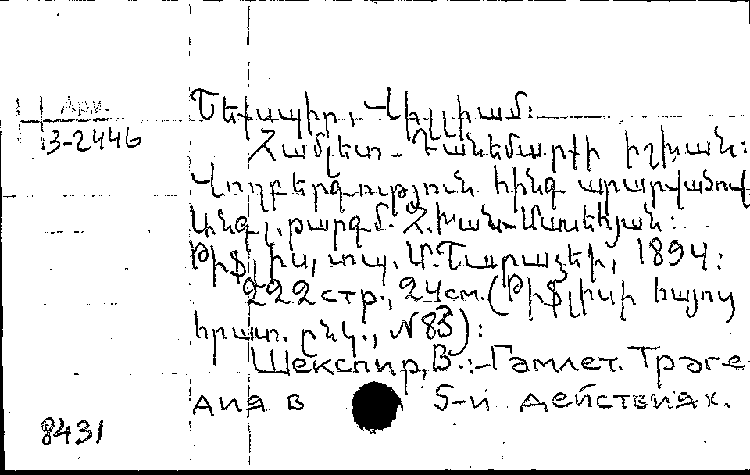 Арм.
3-2446
Շեքսպիր, Վիլլիամ:
Համլետ - Դանեմարքի իշխան:
Վողբերգություն հինգ արարվածով
Անգլ. թարգմ. Հ. Խան-Մասեհյան:
Թիֆլիս, տպ. Մ. Շարաձեի, 1894:
222 стр., 24 см. (Թիֆլիսի հայոց
հրատ. ընկ., №83):
Шекспир, В.: - Гамлет. Траге
дия в 5-и действиях.
8431